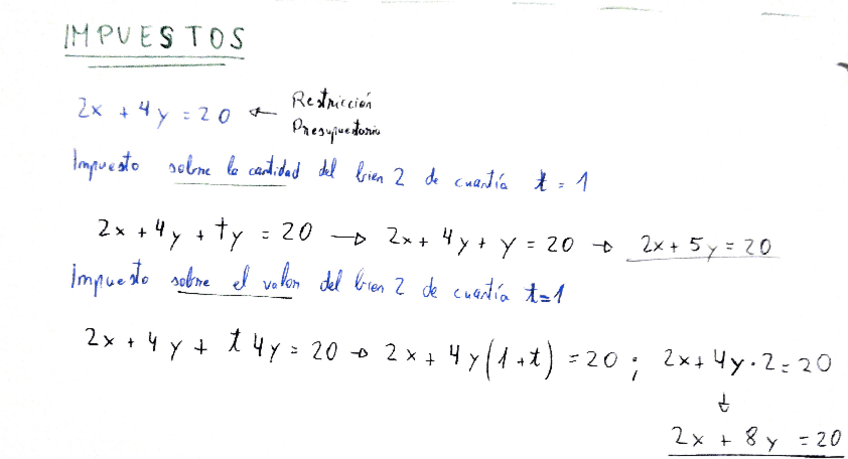 IMPUESTOS
2x + 4y = 20 ← Restricción
Presupuestario
Impuesto sobre la cantidad del bien 2 de cuantía t = 1
2x + 4y + ty = 20 → 2x + 4y + y = 20 → 2x + 5y = 20
Impuesto sobre el valor del bien 2 de cuantía t=1
2x + 4y + t4y = 20 → 2x + 4y(1+t) = 20 ; 2x + 4y·2 = 20
↓
2x + 8y = 20